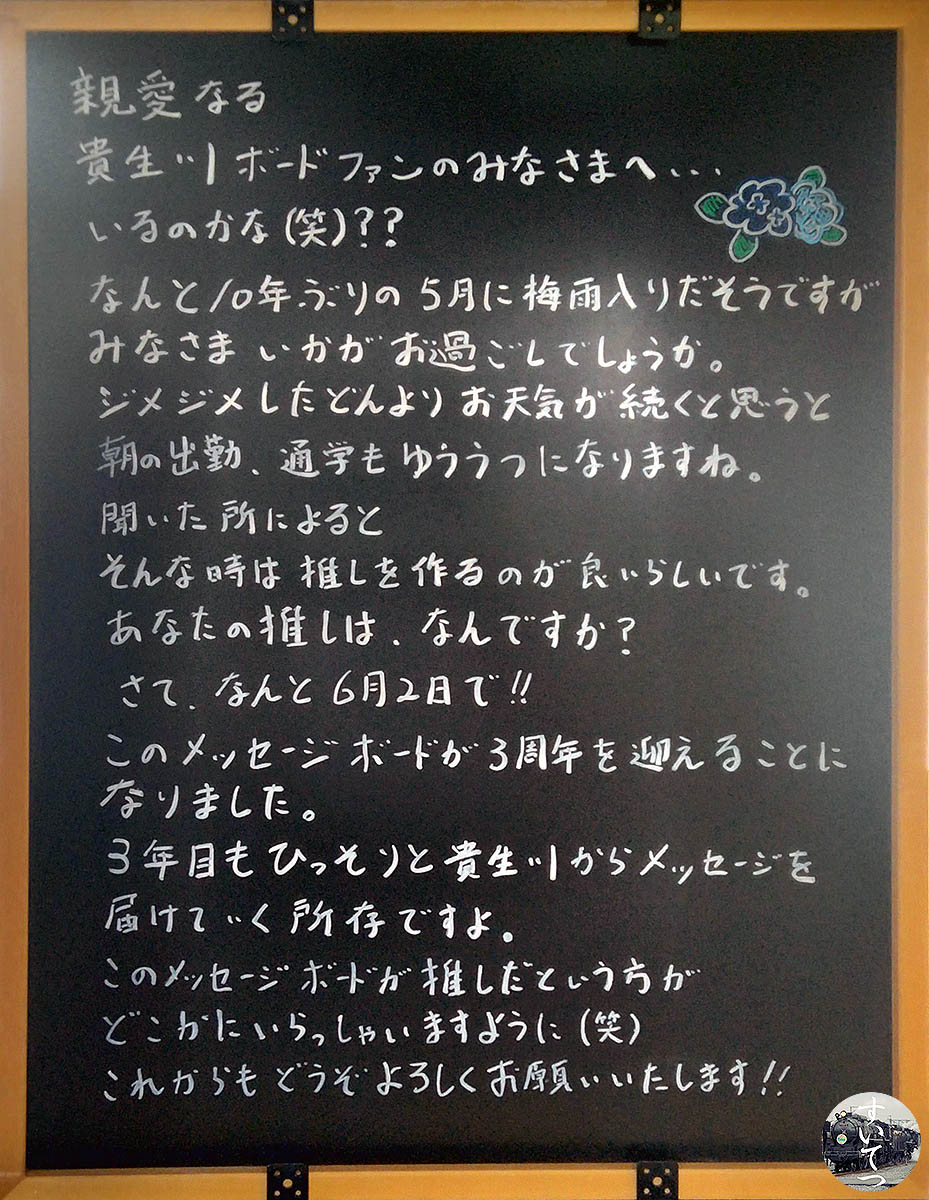 親愛なる
貴生川ボードファンのみなさまへ...
いるのかな(笑)??
なんと10年ぶりの5月に梅雨入りだそうですが
みなさまいかがお過ごしでしょうか。
ジメジメしたどんよりお天気が続くと思うと
朝の出勤、通学もゆううつになりますね。
聞いた所によると
そんな時は推しを作るのが良いらしいです。
あなたの推しは、なんですか?
さて、なんと6月2日で!!
このメッセージボードが3周年を迎えることに
なりました。
3年目もひっそりと貴生川からメッセージを
届けていく所存ですよ。
このメッセージボードが推しだという方が
どこかにいらっしゃいますように(笑)
これからもどうぞよろしくお願いいたします!!
すいてつ